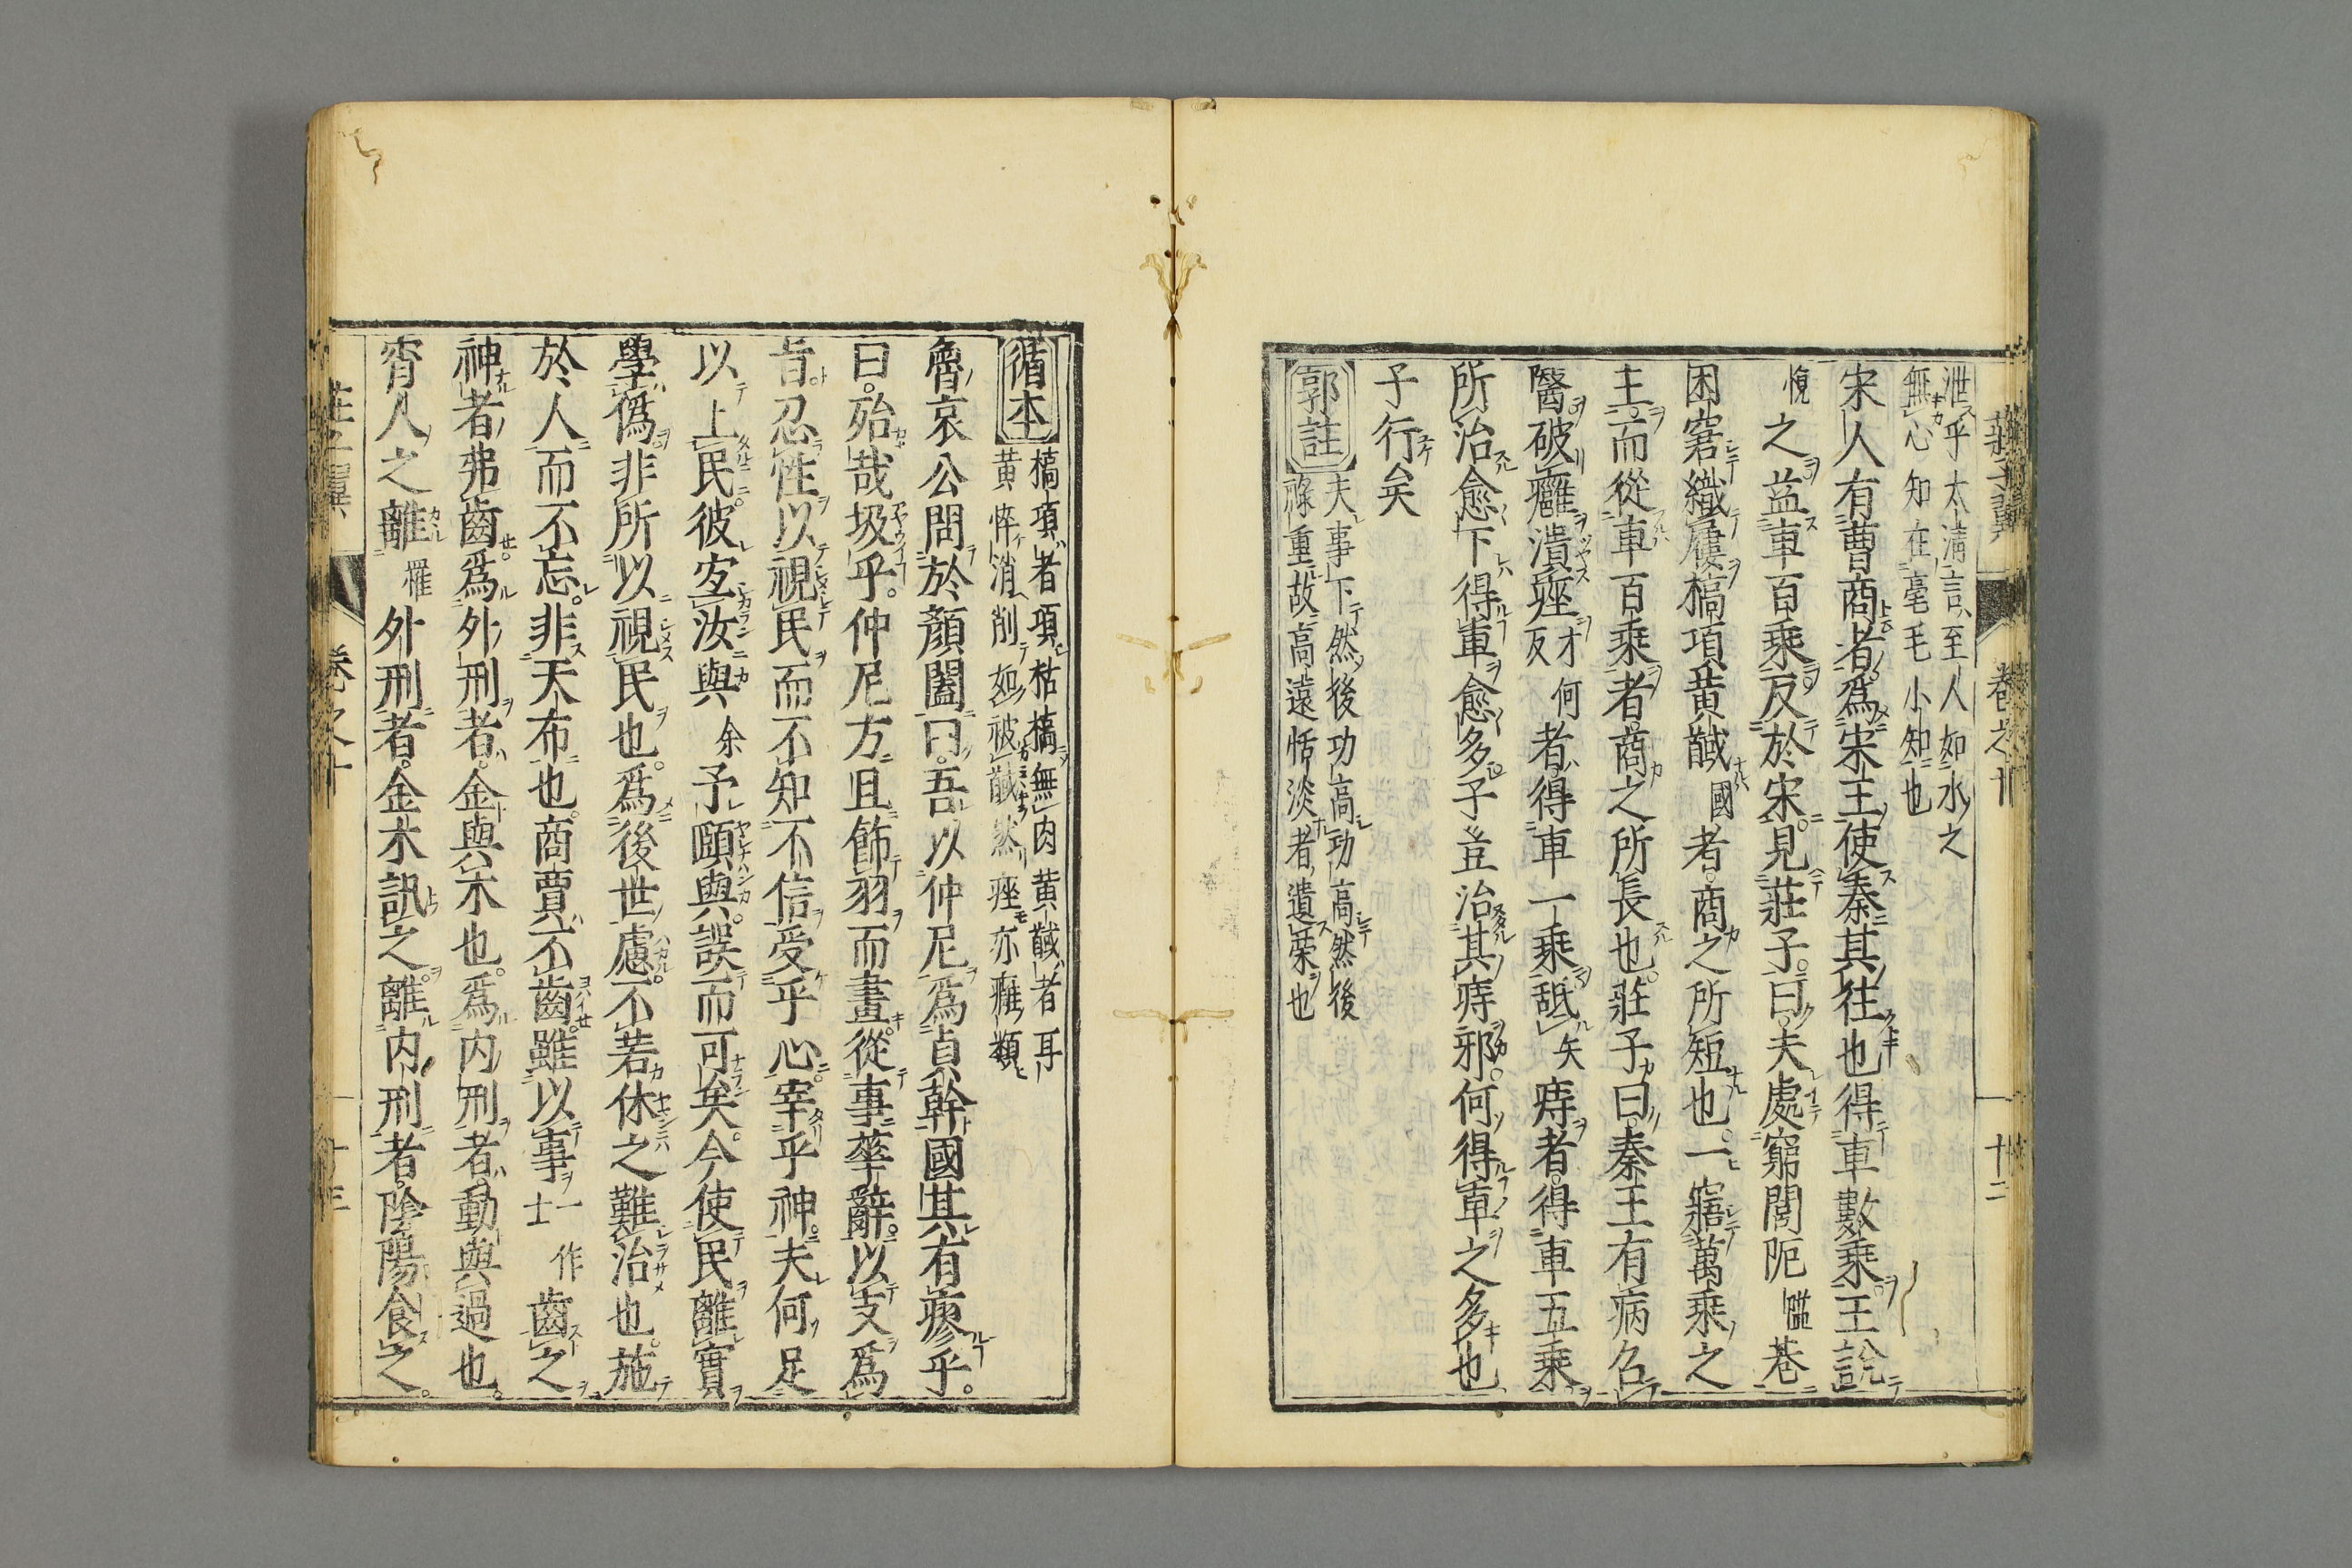 莊子翼 卷之十 十二
泄乎太清言至人如水之
無心知在毫毛小知也
宋人有曹商者爲宋王使秦其往也得車數乘王說
悅之益車百乘反於宋見莊子曰夫處窮閭阨隘巷
困窘織屨槁項黃馘國者商之所短也一寤萬乘之
主而從車百乘者商之所長也莊子曰秦王有病召
醫破癰潰痤才何反者得車一乘舐矢痔者得車五乘
所治愈下得車愈多子豈治其痔邪何得車之多也
子行矣
郭註 夫事下然後功高功高然後
祿重故高遠恬淡者遺榮也
循本 槁項者項枯槁無肉黃馘者耳
黃悴消削如被馘然痤亦癰類
魯哀公問於顏闔曰吾以仲尼爲貞幹國其有瘳乎
曰殆哉圾乎仲尼方且飾羽而畫從事華辭以支爲
旨忍性以視民而不知不信受乎心宰乎神夫何足
以上民彼宜汝與余予頤與誤而可矣今使民離實
學僞非所以視民也爲後世慮不若休之難治也施
於人而不忘非天布也商賈不齒雖以事一作士齒之
神者弗齒爲外刑者金與木也爲内刑者動與過也
宵人之離罹外刑者金木訊之離内刑者陰陽食之
莊子翼 卷之十 十三